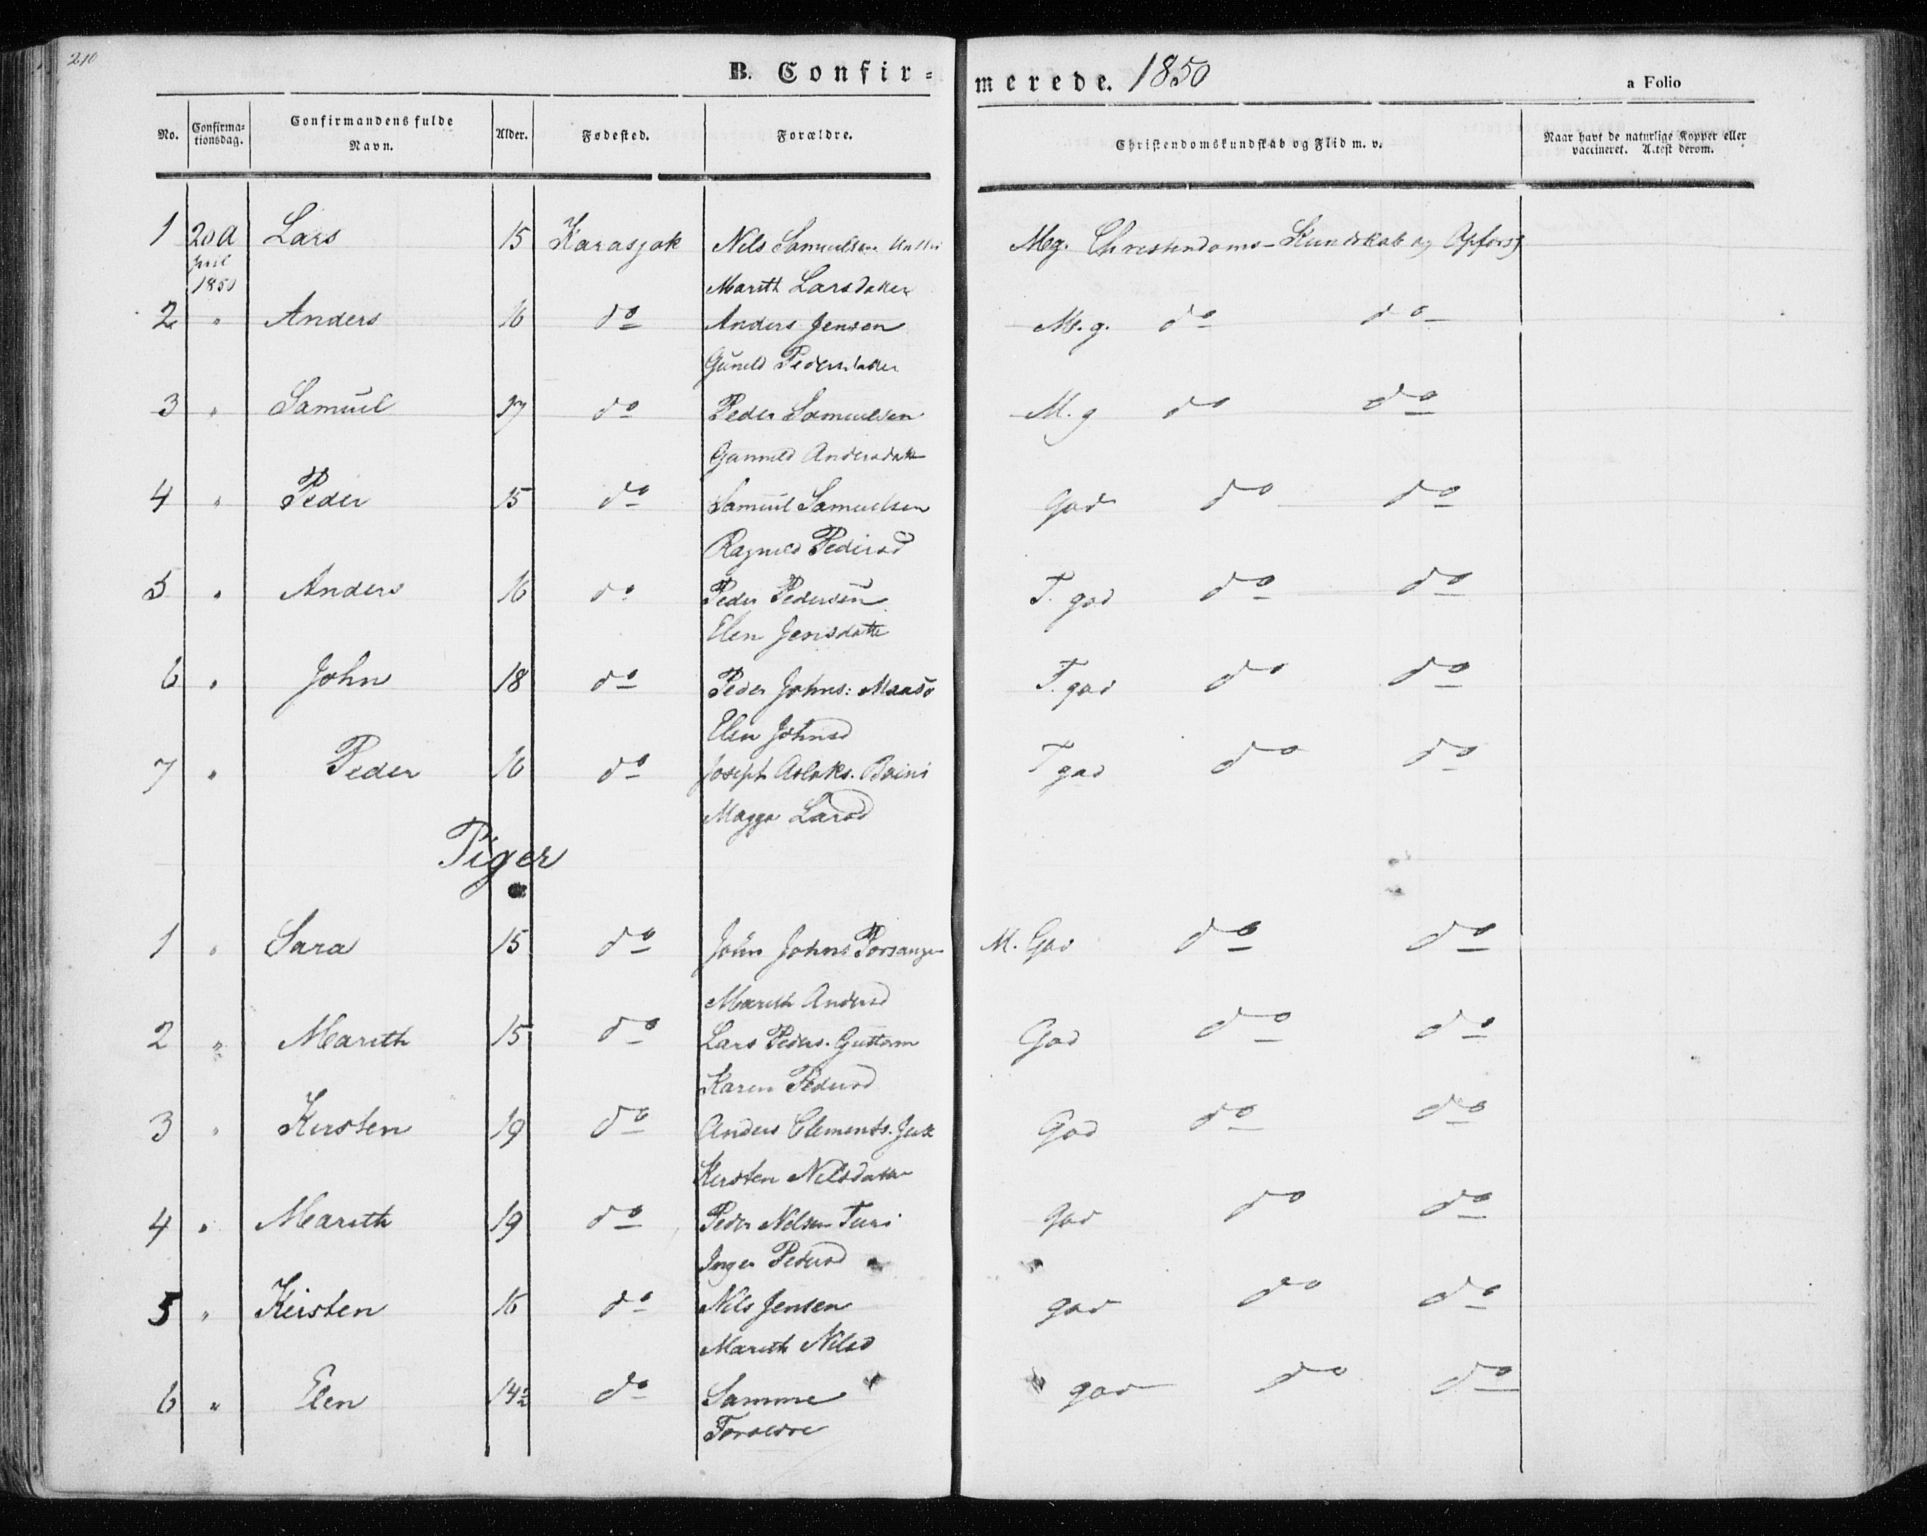 210
B. Confir= merede. 1850 a Folio
No. Confirma-tionsdag. Confirmandens fulde Navn. Alder. Fødested. Forældre. Christendomskundskab og Flid m. v. Naar havt de naturlige Kopper eller vaccineret. Attest derom.
1 20 April 1850 Lars 15 Karasjok Nils Samuelsen Meg. Christendoms-Kundskab og Opførs
Marith Larsdatter
2 " Anders 16 do Anders Jensen M. g. do do
Gunild Pedersdatter
3 " Samuel 17 do Peder Samuelsen M. g do do
Gunnild Andersdatt
4 " Peder 15 do Samuel Samuelsen God do do
Ragnild Pedersd
5 " Anders 16 do Peder Pedersen T. god do do
Elen Jensdatte
6 " John 18 do Peder Johns: Maasø T. god do do
Elen Johnsd
7 " Peder 16 do Joseph Aslaks. Baini T god do do
Magga Larsd
Piger
1 " Sara 15 do John Johns Porsanger M. God do do
Marith Andersd
2 " Marith 15 do Lars Peders. Guttorm God do do
Karen Pedersd
3 " Kirsten 19 do Anders Clements. God do do
Kirsten Nilsdatter
4 " Marith 19 do Peder Nilsen Turi god do do
Inger Pedersd
5 " Keirsten 16 do Nils Jensen god do do
Marith Nilsd
6 " Elen 14½ do Samme god do do
Foraeldre